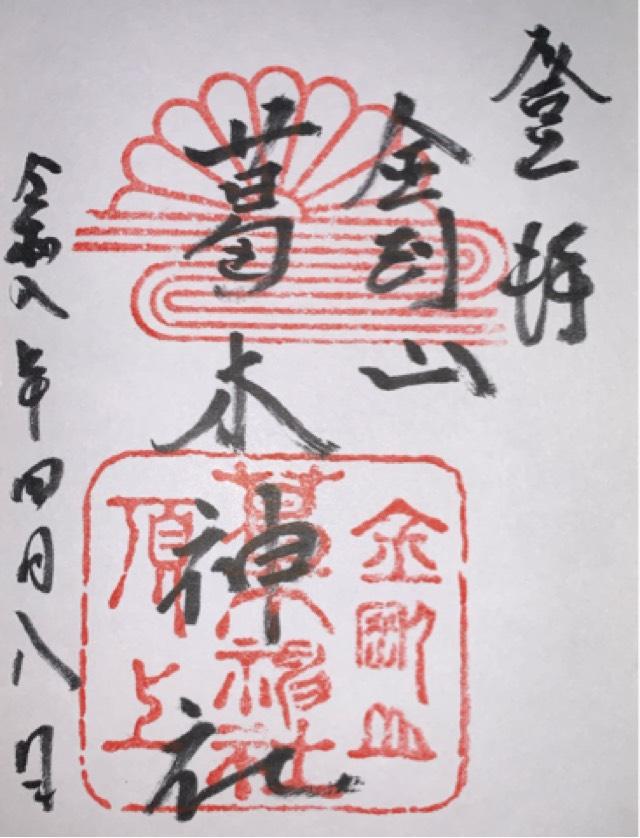 登拝
金剛山
葛木神社
令和八年四月八日
金剛山
葛木神社
頂上